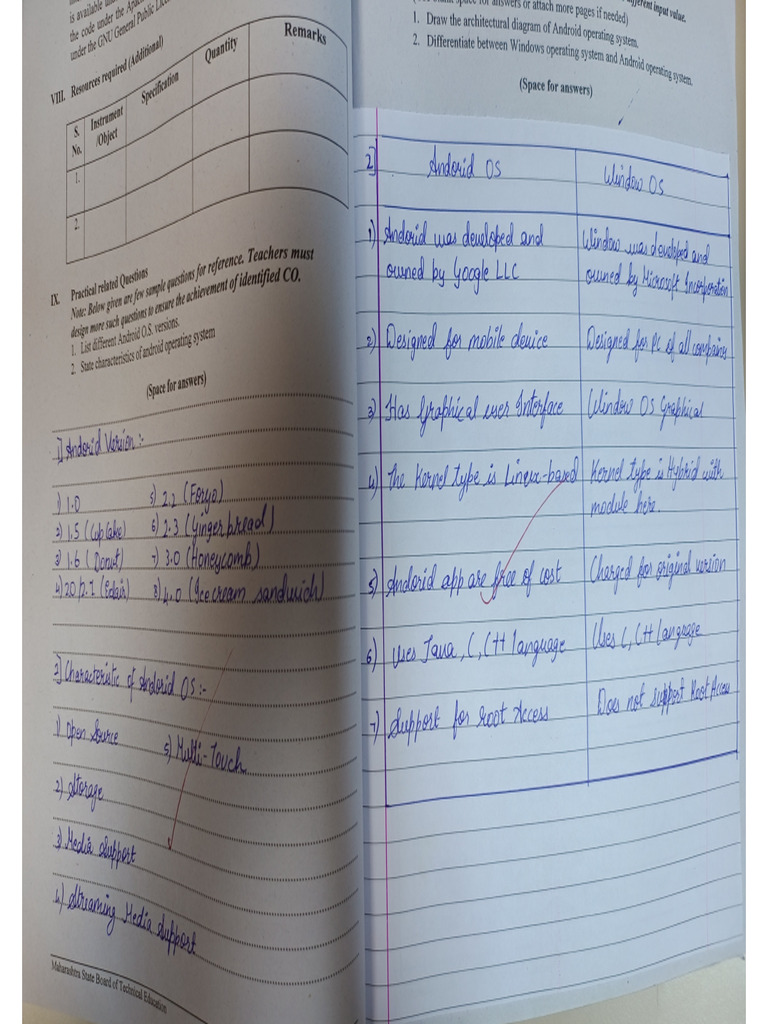 is available und
the code under the Apac
under the GNU General Public Lice
VIII. Resources required (Additional)
S. No. Instrument /Object Specification Quantity Remarks
1.
2.
IX. Practical related Questions
Note: Below given are few sample questions for reference. Teachers must
design more such questions to ensure the achievement of identified CO.
1. List different Android O.S. versions.
2. State characteristics of android operating system
(Space for answers)
1] Andorid Version :-
1) 1.0 5) 2.2 (Foryo)
2) 1.5 (Cup Cake) 6) 2.3 (Gingerbread)
3) 1.6 (Donut) 7) 3.0 (Honeycomb)
4) 20/2.1 (Eclair) 8) 4.0 (Ice cream sandwich)
2] Characteristic of Andorid OS :-
1) Open Source 5) Multi-Touch
2) Storage
3) Media Support
4) Streaming Media Support
Maharashtra State Board of Technical Education
space for answers or attach more pages if needed)
different input value.
1. Draw the architectural diagram of Android operating system.
2. Differentiate between Windows operating system and Android operating system.
(Space for answers)
2] Andorid OS Window OS
1) Andorid was developed and Window was developed and
owned by Google LLC owned by Microsoft Incorporation
2) Designed for mobile device Designed for PC of all companies
3) Has Graphical user Interface Window OS Graphical
4) The Kernel type is Linux-based Kernel type is Hybrid with
module here.
5) Andorid app are free of cost Charged for original version
6) Uses Java, C, C++ language Uses C, C++ Language
7) Support for Root Access Does not support Root Access